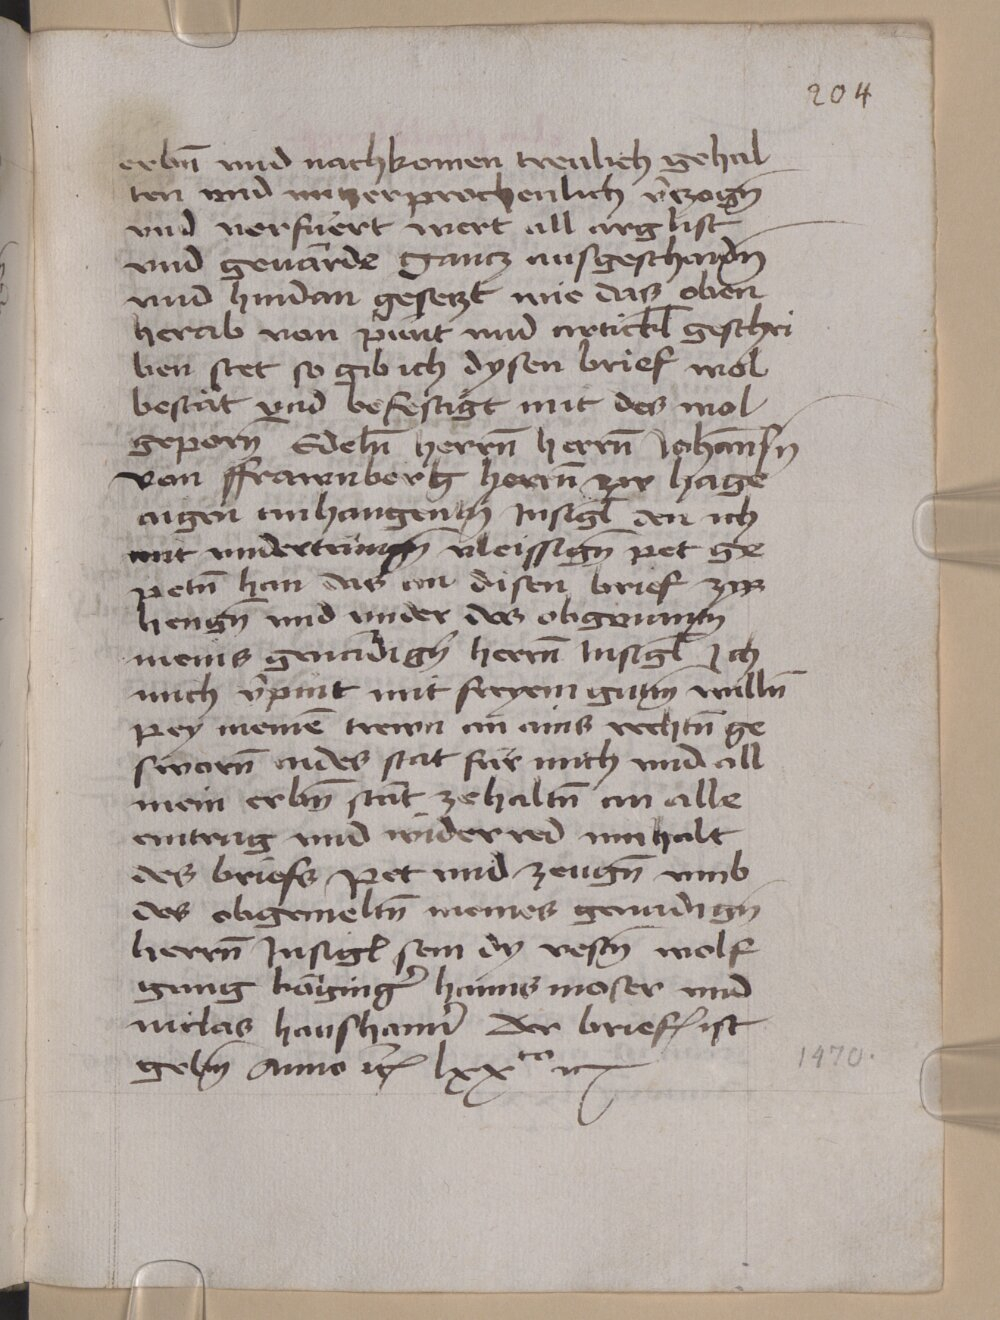 204
erbñ vnd nachkomen treulich gehal
ten vnd vnzerprochenlich v̄zogñ
vnd verfuert wert all arglist
vnd geuärde gantz ausgeschaidñ
vnd hindan gesetzt wie das oben
herab von punt vnd artickl̄ geschri
ben stet so gib ich dysen brief wol
bestät vnd befestigt mit des wol
geporñ Edelñ herrñ herrñ Johansñ
von ffrawnberg herrñ zw hage
aigen anhangendñ Insigl̄ den ich
mit vndertänigñ vleissigñ pet ge
petñ han das an disen brief zw
hengñ vnd vnder des obgenantñ
meins genädigñ herrñ Insigl̄ Ich
mich v̄pint mit freyem gutñ willñ
pey meinē trewn an ains rechtñ ge
sworñ aides stat für mich vnd all
mein erbñ stät zehaltñ an alle
eintrag vnd widerred innhalt
des briefs Pet vnd zeugñ vmb
des obgemeltñ meines genädigñ
herrñ Insigl̄ sein dy vestñ wolf
gang hanns moser vnd
niclas Der brief ist
gebñ Anno lxx to
1470.